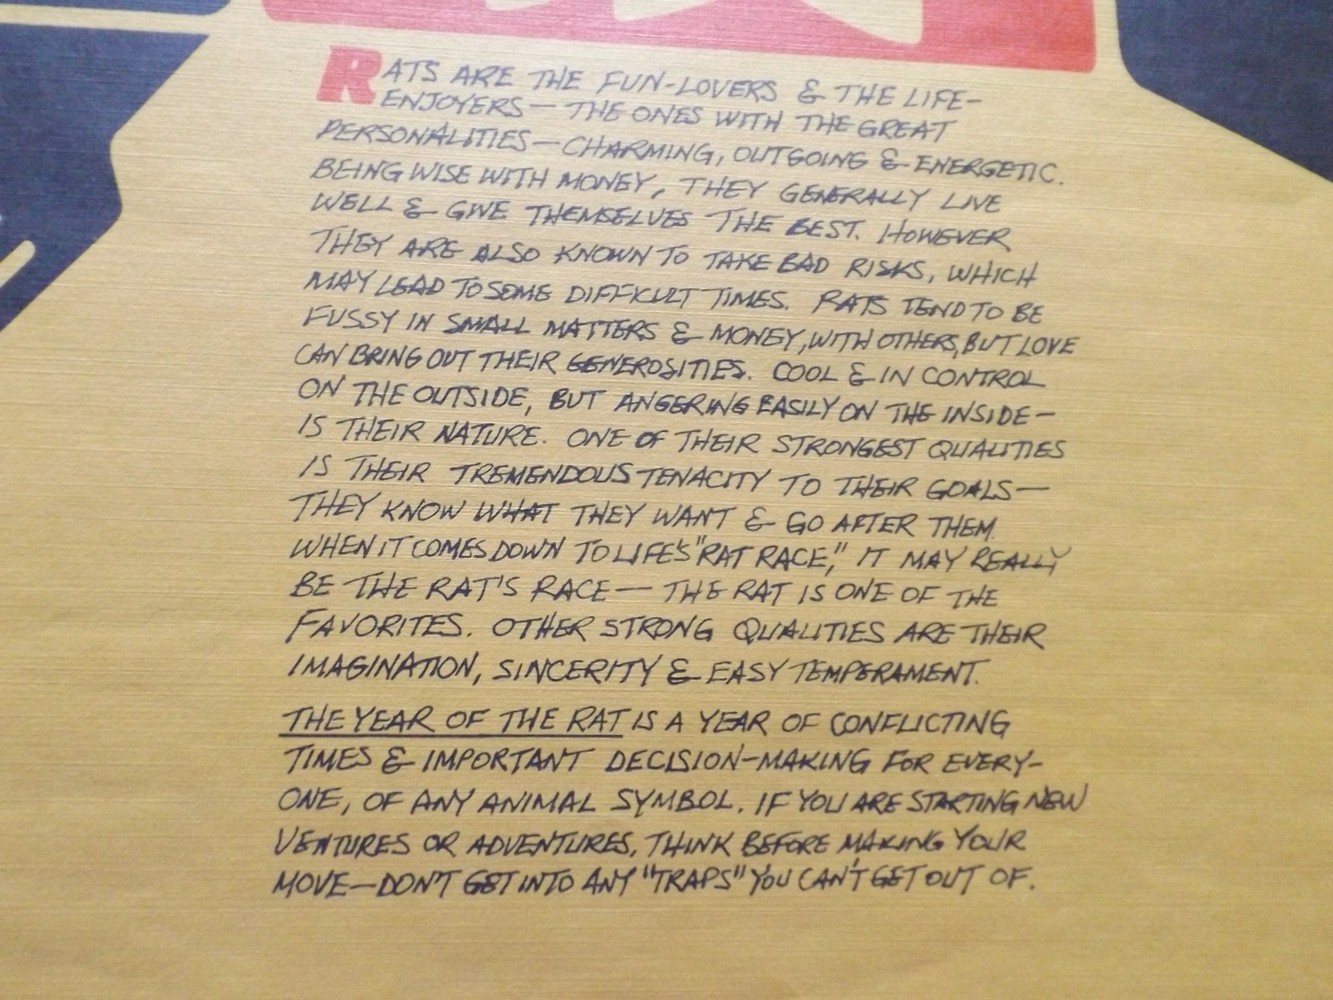 RATS ARE THE FUN-LOVERS & THE LIFE-
ENJOYERS — THE ONES WITH THE GREAT
PERSONALITIES — CHARMING, OUTGOING & ENERGETIC.
BEING WISE WITH MONEY, THEY GENERALLY LIVE
WELL & GIVE THEMSELVES THE BEST. HOWEVER
THEY ARE ALSO KNOWN TO TAKE BAD RISKS, WHICH
MAY LEAD TO SOME DIFFICULT TIMES. RATS TEND TO BE
FUSSY IN SMALL MATTERS & MONEY, WITH OTHERS, BUT LOVE
CAN BRING OUT THEIR GENEROSITIES. COOL & IN CONTROL
ON THE OUTSIDE, BUT ANGERING EASILY ON THE INSIDE —
IS THEIR NATURE. ONE OF THEIR STRONGEST QUALITIES
IS THEIR TREMENDOUS TENACITY TO THEIR GOALS —
THEY KNOW WHAT THEY WANT & GO AFTER THEM.
WHEN IT COMES DOWN TO LIFE'S "RAT RACE," IT MAY REALLY
BE THE RAT'S RACE — THE RAT IS ONE OF THE
FAVORITES. OTHER STRONG QUALITIES ARE THEIR
IMAGINATION, SINCERITY & EASY TEMPERAMENT.
THE YEAR OF THE RAT IS A YEAR OF CONFLICTING
TIMES & IMPORTANT DECISION-MAKING FOR EVERY-
ONE, OF ANY ANIMAL SYMBOL. IF YOU ARE STARTING NEW
VENTURES OR ADVENTURES, THINK BEFORE MAKING YOUR
MOVE — DON'T GET INTO ANY "TRAPS" YOU CAN'T GET OUT OF.